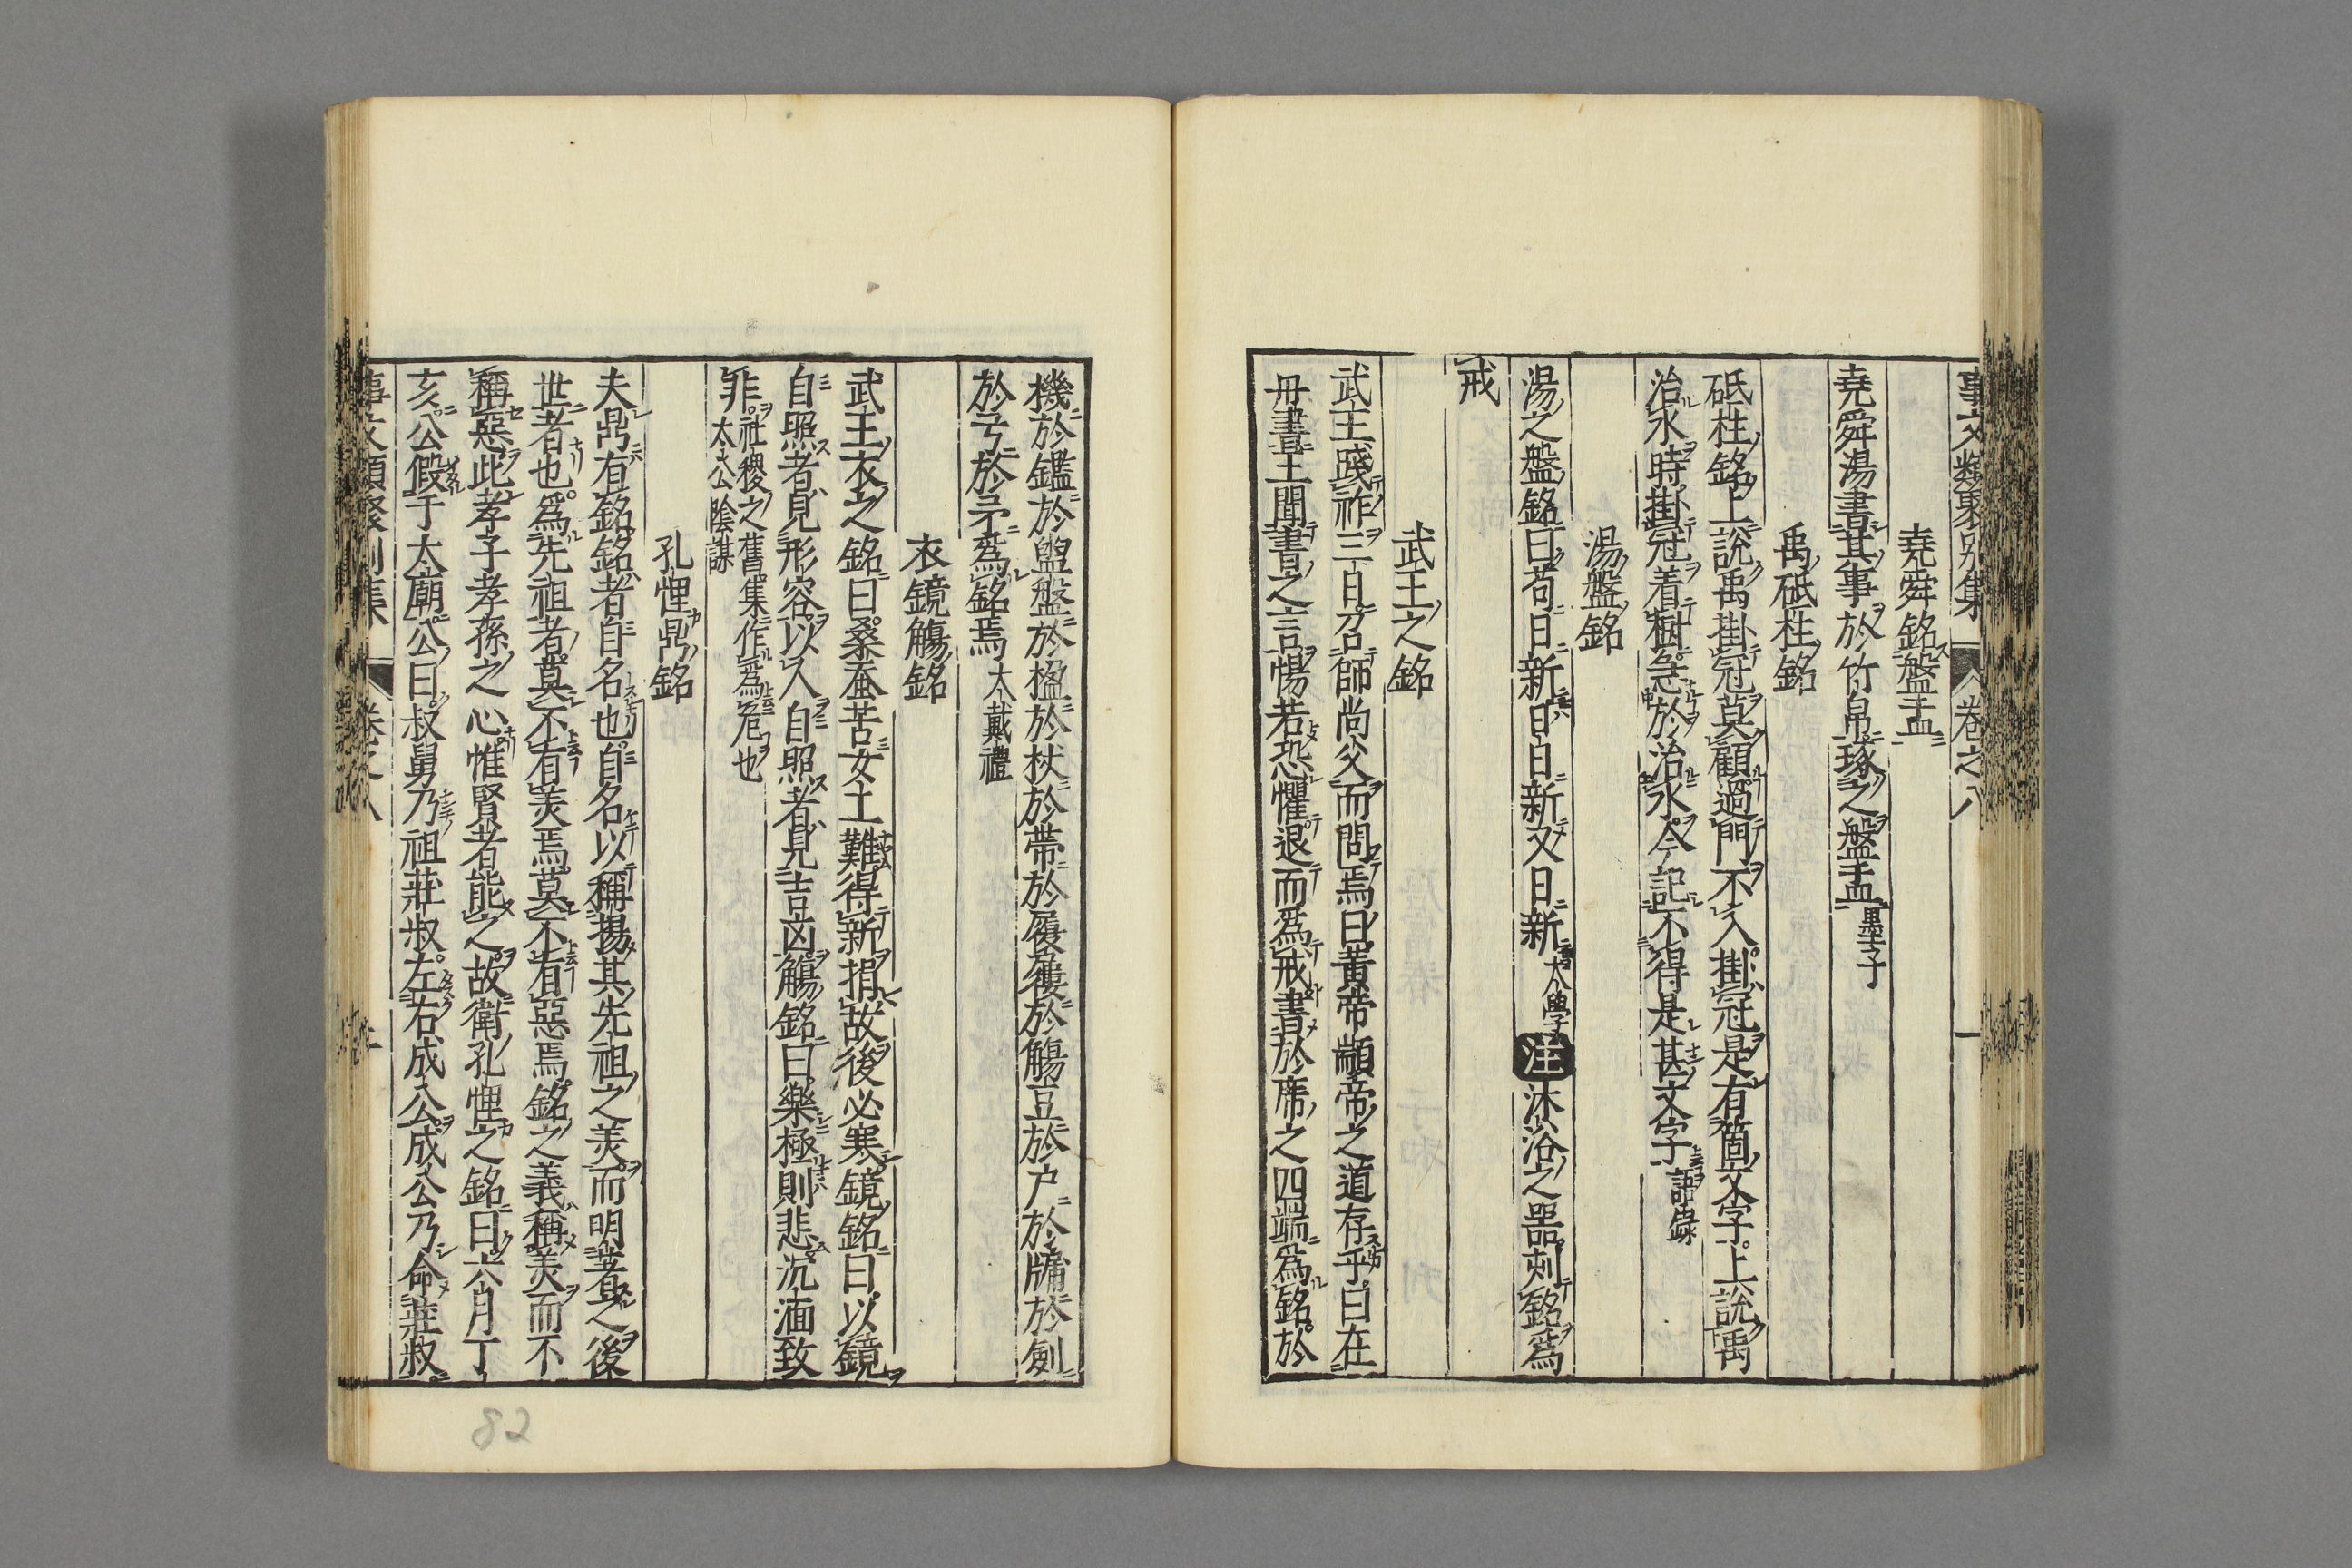 事文類聚別集 卷之八 一
堯舜銘盤盂
堯舜湯書其事於竹帛琢之盤盂墨子
禹砥柱銘
砥柱銘上說禹掛冠莫顧過門不入掛冠是有箇文字上說禹
治水時掛冠着樹急於治水今記不得是甚文字語錄
湯盤銘
湯之盤銘曰苟日新日日新又日新大學注沐浴之器刻銘爲
戒
武王之銘
武王踐祚三日召師尚父而問焉曰黃帝顓帝之道存乎曰在
丹書王聞書之言惕若恐懼退而爲戒書於席之四端爲銘於
機於鑑於盥盤於楹於杖於帶於履屨於觴豆於户於牖於劍
於弓於矛爲銘焉大戴禮
衣鏡觴銘
武王衣之銘曰桑蚕苦女工難得新捐故後必寒鏡銘曰以鏡
自照者見形容以人自照者見吉凶觴銘曰樂極則悲沉湎致
非社稷之舊集作爲危也
太公陰謀
孔悝鼎銘
夫鼎有銘銘者自名也自名以稱揚其先祖之美而明著之後
世者也爲先祖者莫不有美焉莫不有惡焉銘之義稱美而不
稱惡此孝子孝孫之心惟賢者能之故衛孔悝之銘曰六月丁
亥公假于太廟公曰叔舅乃祖莊叔左右成公成公乃命莊叔
事文類聚別集 卷之八
82